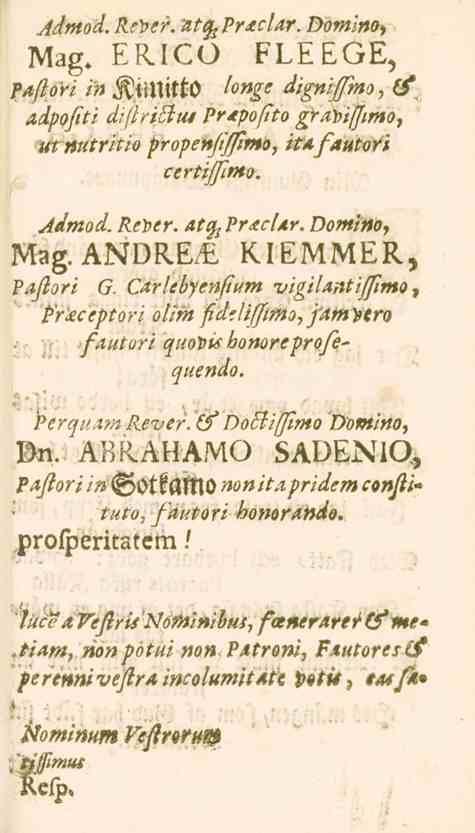 Admod. Rever. atq; Præclar. Domino,
Mag. ERICO FLEEGE,
Paſtori in Kimitto longe digniſſmo, &
adpoſiti diſtrictus Præpoſito graviſſimo,
ut nutritio propenſiſſimo, ita fautori
certiſſimo.
Admod. Rever. atq; Præclar. Domino,
Mag. ANDREÆ KIEMMER,
Paſtori G. Carlebyenſium vigilantiſſimo,
Præceptori olim fideliſſimo, jam vero
fautori quovis honore proſe-
quendo.
Perquam Rever. & Doctiſſimo Domino,
Dn. ABRAHAMO SADENIO,
Paſtori in Sotkamo non ita pridem conſti-
tuto, fautori honorando.
proſperitatem !
lucē a Veſtris Nominibus, fœnerarer & me-
tiam, non potui non Patroni, Fautores &
perenni veſtra incolumitate votis, eas ſa-
Nominum Veſtrorum
tiſſimus
Reſp.